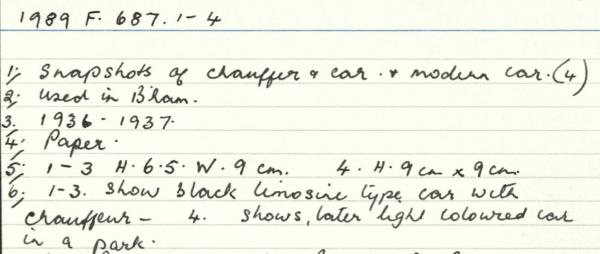 1989 F. 687. 1-4
1; Snapshots of chauffer & car. & modern car. (4)
2; Used in B'ham.
3. 1936 - 1937.
4; Paper.
5; 1-3 H. 6.5. W. 9 cm. 4. H. 9 cm x 9 cm.
6; 1-3. Show black limosine type car with
chauffeur - 4. Shows, later light coloured car
in a park.